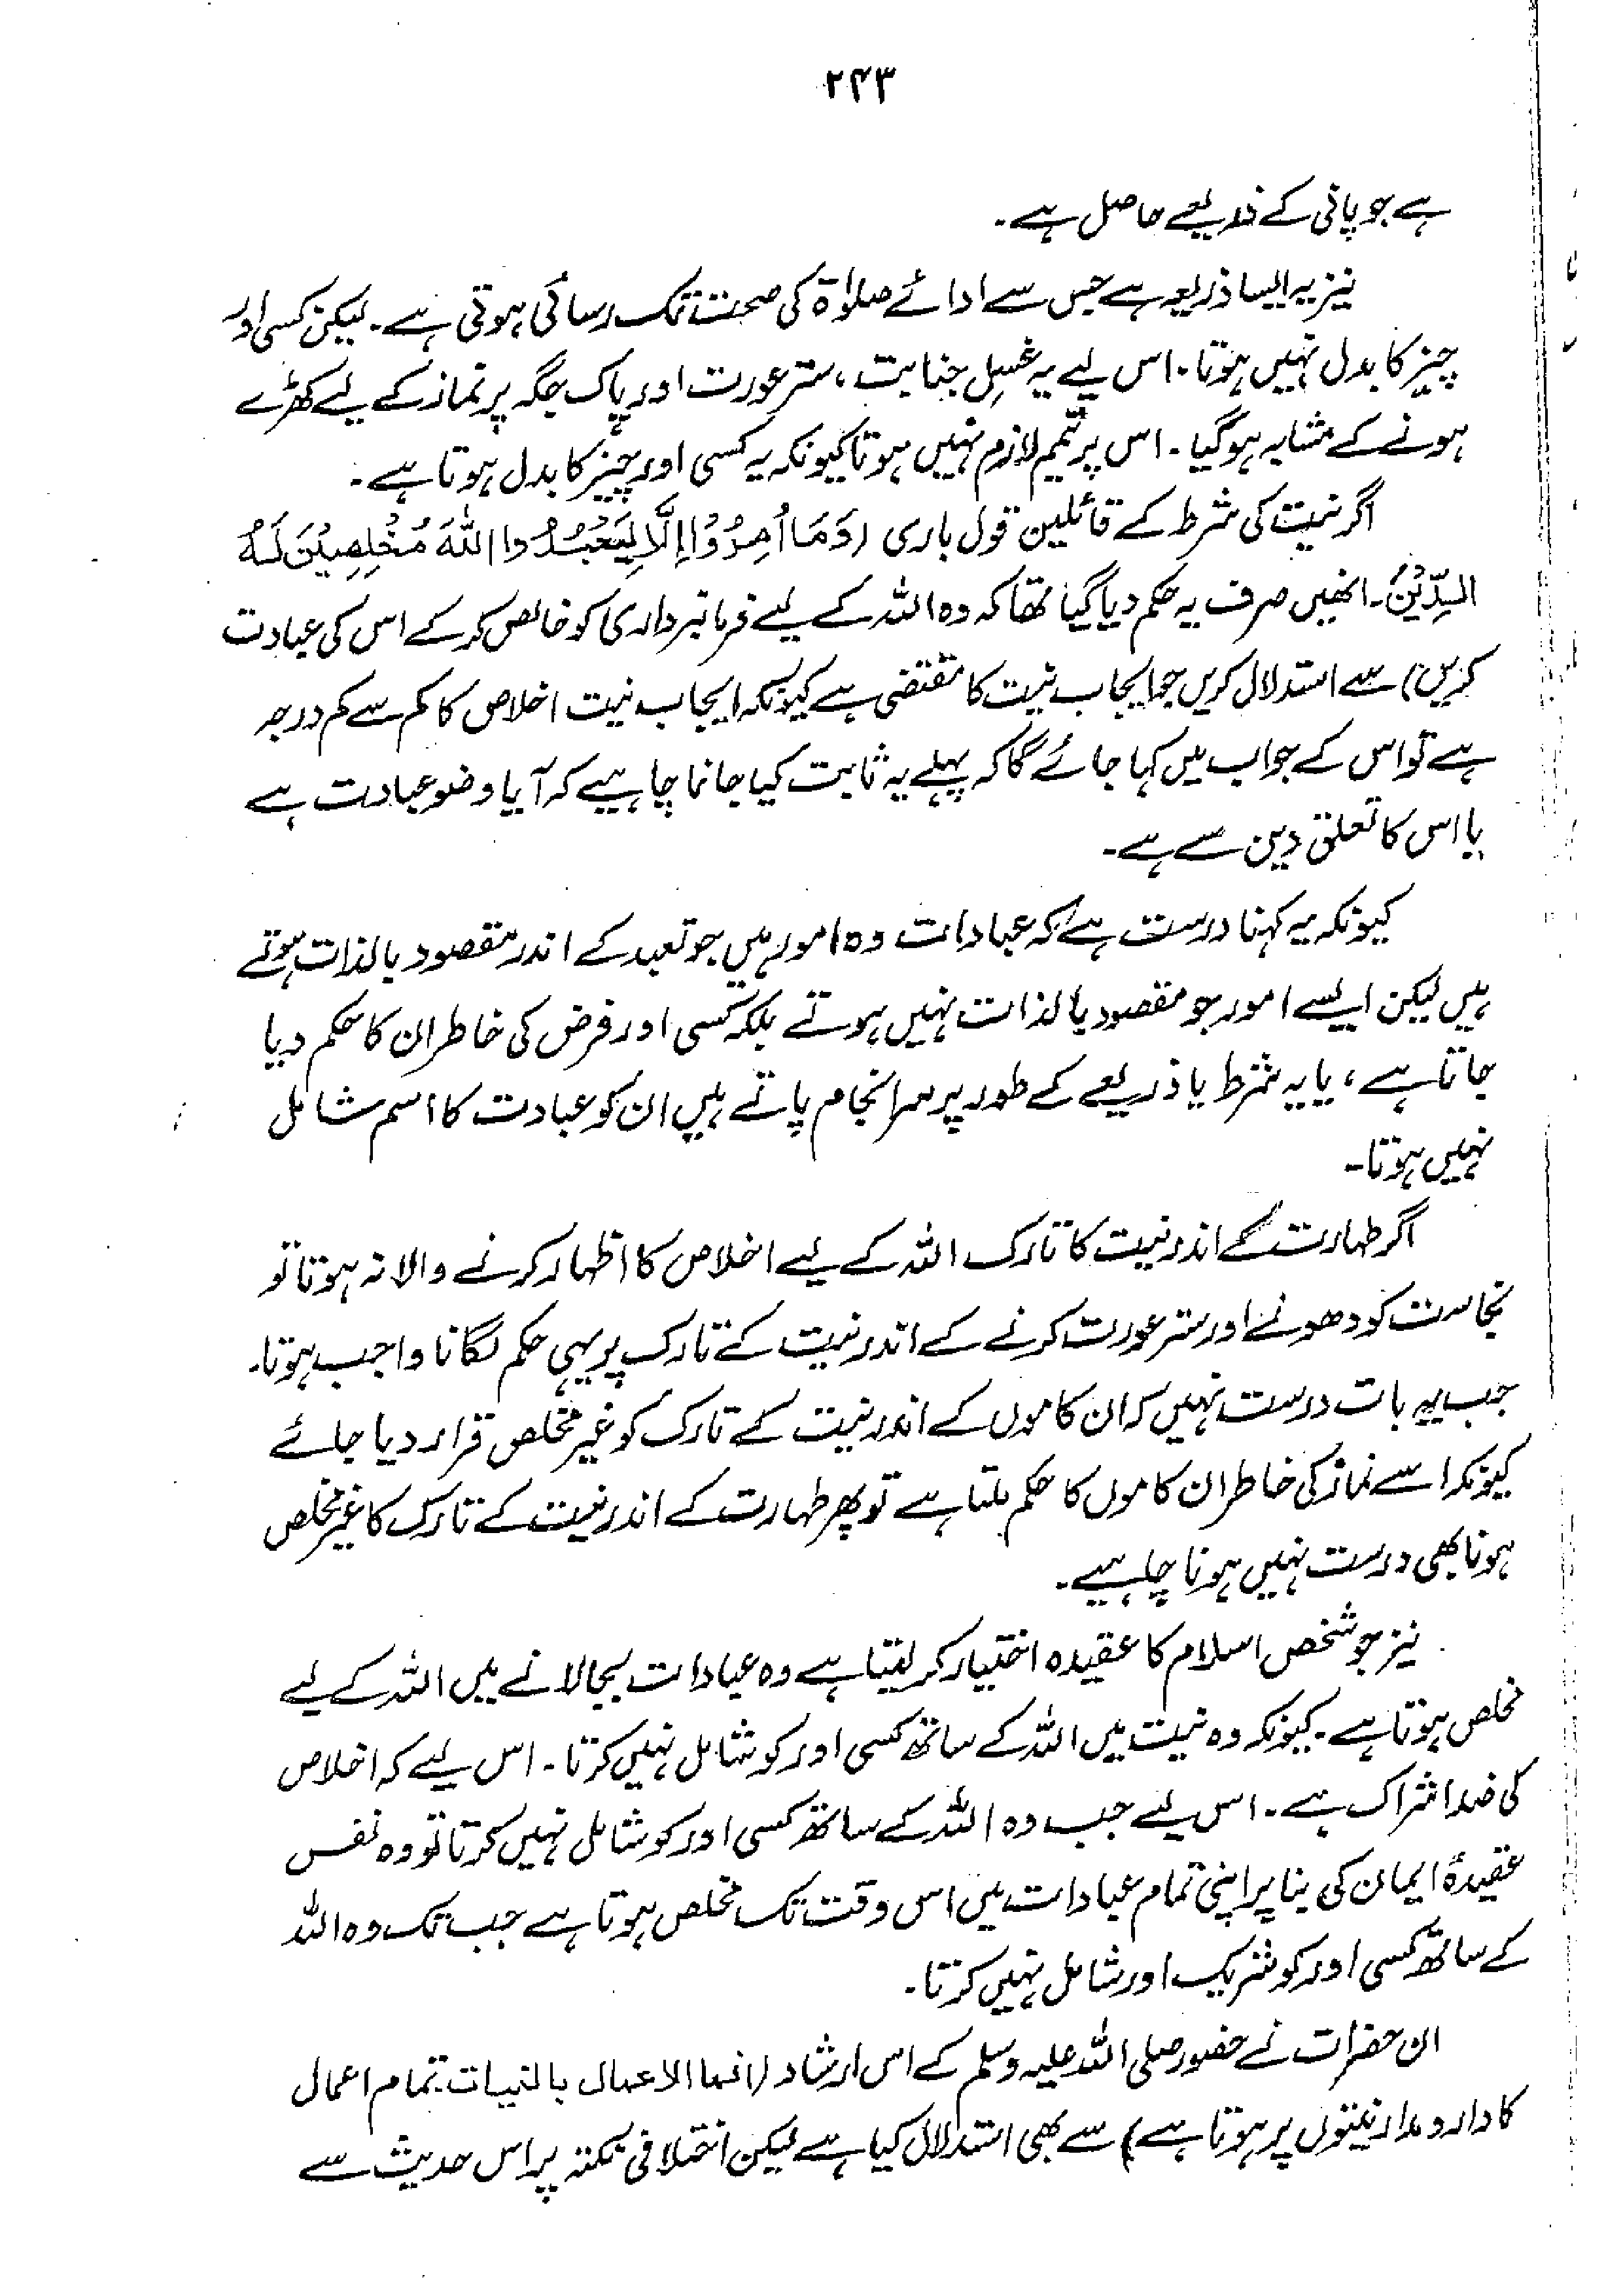 ۲۴۳
ہے جو پانی کے ذریعے حاصل ہے۔
نیز یہ ایسا ذریعہ ہے جس سے ادائے صلوٰۃ کی صحت تک رسائی ہوتی ہے۔ لیکن کسی اور
چیز کا بدل نہیں ہوتا۔ اس لیے یہ غسلِ جنابت، ستر عورت اور پاک جگہ پر نماز کے لیے کھڑے
ہونے کے مشابہ ہو گیا۔ اس پر تیمم لازم نہیں ہوتا کیونکہ یہ کسی اور چیز کا بدل ہوتا ہے۔
اگر نیت کی شرط کے قائلین قول باری (وَمَا اُمِرُوْا اِلَّا لِيَعْبُدُوا اللّٰهَ مُخْلِصِيْنَ لَهُ
الدِّيْنَ۔ انھیں صرف یہ حکم دیا گیا تھا کہ وہ اللہ کے لیے فرمانبرداری کو خالص کر کے اس کی عبادت
کریں) سے استدلال کریں جو ایجاب نیت کا مقتضی ہے کیونکہ ایجاب نیت اخلاص کا کم سے کم درجہ
ہے تو اس کے جواب میں کہا جائے گا کہ پہلے یہ ثابت کیا جانا چاہیے کہ آیا وضو عبادت ہے
یا اس کا تعلق دین سے ہے۔
کیونکہ یہ کہنا درست ہے کہ عبادات وہ امور ہیں جو تعبد کے اندر مقصود بالذات ہوتے
ہیں لیکن ایسے امور جو مقصود بالذات نہیں ہوتے بلکہ کسی اور فرض کی خاطر ان کا حکم دیا
جاتا ہے، یا یہ شرط یا ذریعے کے طور پر سرانجام پاتے ہیں ان کو عبادت کا اسم شامل
نہیں ہوتا۔
اگر طہارت کے اندر نیت کا تارک اللہ کے لیے اخلاص کا اظہار کرنے والا نہ ہوتا تو
نجاست کو دھونے اور ستر عورت کرنے کے اندر نیت کے تارک پر یہی حکم لگانا واجب ہوتا۔
جب یہ بات درست نہیں کہ ان کاموں کے اندر نیت کے تارک کو غیر مخلص قرار دیا جائے
کیونکہ اسے نماز کی خاطر ان کاموں کا حکم ملتا ہے تو پھر طہارت کے اندر نیت کے تارک کا غیر مخلص
ہونا بھی درست نہیں ہونا چاہیے۔
نیز جو شخص اسلام کا عقیدہ اختیار کر لیتا ہے وہ عبادات بجا لانے میں اللہ کے لیے
مخلص ہوتا ہے۔ کیونکہ وہ نیت میں اللہ کے ساتھ کسی اور کو شامل نہیں کرتا۔ اس لیے کہ اخلاص
کی ضد اشراک ہے۔ اس لیے جب وہ اللہ کے ساتھ کسی اور کو شامل نہیں کرتا تو وہ نفس
عقیدۂ ایمان کی بنا پر اپنی تمام عبادات میں اس وقت تک مخلص ہوتا ہے جب تک وہ اللہ
کے ساتھ کسی اور کو شریک اور شامل نہیں کرتا۔
ان حضرات نے حضور صلی اللہ علیہ وسلم کے اس ارشاد (انما الاعمال بالنیات۔ تمام اعمال
کا دار و مدار نیتوں پر ہوتا ہے) سے بھی استدلال کیا ہے لیکن اختلافی نکتہ پر اس حدیث سے